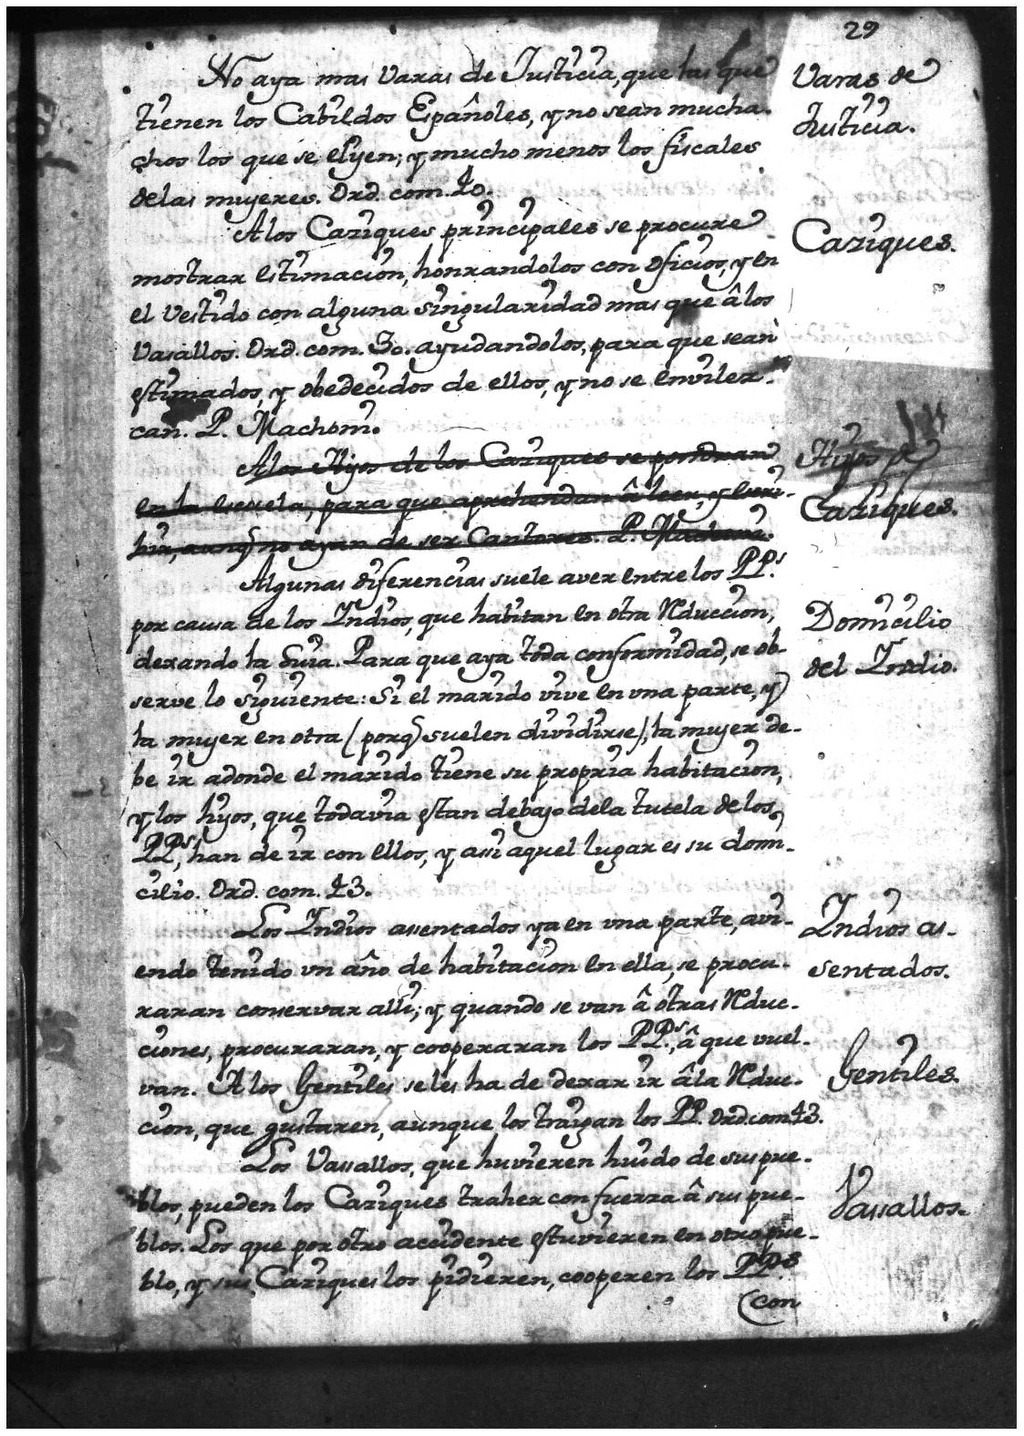 29
No aya mas Varas de Justicia, que las que
Varas de
Justicia.
tienen los Cabildos Españoles, y no sean mucha-
chos los que se elijen; y mucho menos los fiscales
delas mujeres. Ord. com. 40.
A los Caziques principales se procure
Caziques.
mostrar estimacion, honrandolos con oficios, y en
el vestido con alguna singularidad mas que â los
Vasallos. Ord. com. 30. ayudandolos, para que sean
estimados, y obedecidos de ellos, y no se envilez-
can. P. Machoni.
A los Hijos de los Caziques se pondran
Hijos de
Caziques.
en la escuela, para que aprehendan â leer, y escri-
bir, aunq no ayan de ser Cantores. P. Machoni.
Algunas diferencias suele aver entre los PP.s
por causa de los Indios, que habitan en otra Rduccion,
Domicilio
del Indio.
dexando la suia. Para que aya toda conformidad, se ob-
serve lo siguiente: Si el marido vive en una parte, y
la mujer en otra (porq suelen dividirse), la mujer de-
be ir adonde el marido tiene su propria habitacion,
y los hijos, que todavia estan debajo dela tutela de los
PP.s, han de ir con ellos, y assi aquel lugar es su domi-
cilio. Ord. com. 43.
Los Indios assentados ya en una parte, avi-
Indios as-
sentados.
endo tenido un año de habitacion en ella, se procu-
raran conservar alli; y quando se van â otras Rduc-
ciones, procuraran, y cooperaran los PP.s, â que vuel-
van. A los Gentiles se les ha de dexar ir â la Rduc-
Gentiles.
cion, que gustaren, aunque los traigan los PP. Ord. com 43.
Los Vassallos, que huvieren huido de sus pue-
Vassallos.
blos, pueden los Caziques traher con fuerza â sus pue-
blos. Los que por otro accidente estuvieren en otro pue-
blo, y sus Caziques los pidieren, cooperen los PP.s
(con